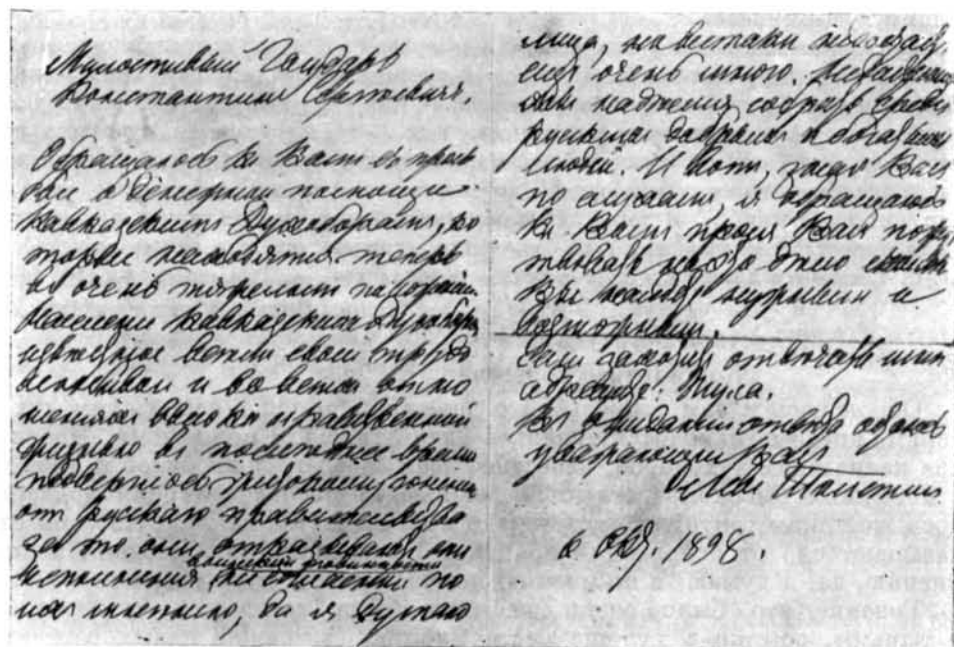 Милостивый Государь
Константинъ Сергѣевичъ,
Обращаюсь къ Вамъ съ прось
бой о денежной помощи
Кавказскимъ Духоборамъ, ко
торые находятся теперь
въ очень тяжеломъ положеніи
Населеніе Кавказскихъ Духоборъ
извѣстное всѣмъ своимъ трудо
и во всѣхъ отно
шеніяхъ высоко нравственной
жизнью въ послѣднее время
подверглось гоненію
отъ русскаго правительства
за то, что они отказывались отъ
исполненія воинской повинности
да я думаю
лица, на
очень много.
собрать среди
русскихъ добрыхъ и богатыхъ
людей. И вотъ, зная Васъ
по слухамъ, я обращаюсь
къ Вамъ прося Васъ
на это дѣло сколько
Вы найдете нужнымъ и
возможнымъ.
Если захотите отвѣчать мнѣ
адресуйте: Тула.
Въ ожиданіи отвѣта остаюсь
уважающій Васъ
Левъ Толстой
6 Окт. 1898.